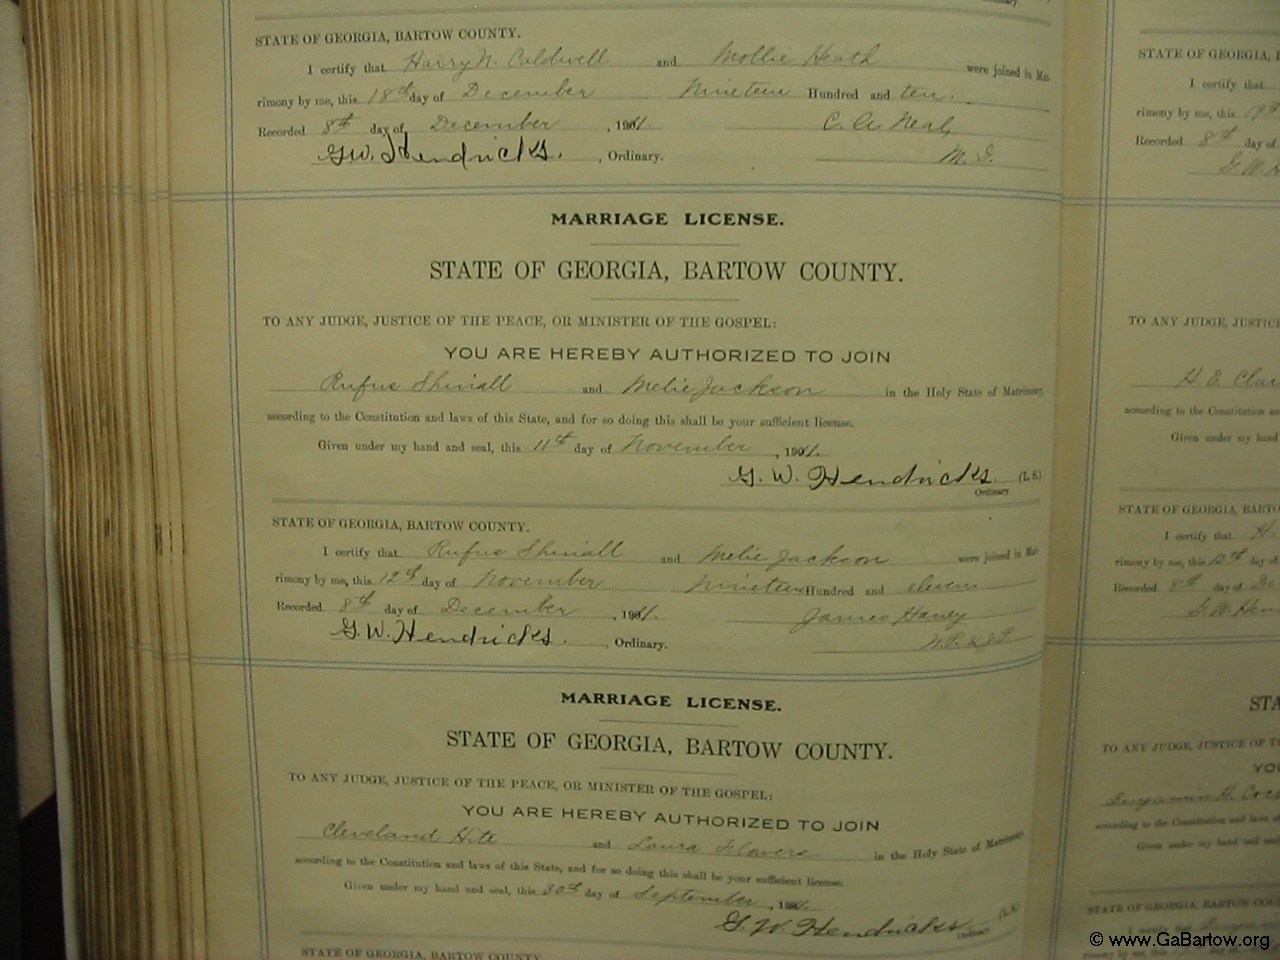 Ordinary.
STATE OF GEORGIA, BARTOW COUNTY.
I certify that Harry N. Caldwell and Mollie Heath were joined in Mat
rimony by me, this 18th day of December Nineteen Hundred and ten.
Recorded 8th day of December , 1911.
C. A. Neal,
G.W. Hendricks. , Ordinary.
M. G.
MARRIAGE LICENSE.
STATE OF GEORGIA, BARTOW COUNTY.
TO ANY JUDGE, JUSTICE OF THE PEACE, OR MINISTER OF THE GOSPEL:
YOU ARE HEREBY AUTHORIZED TO JOIN
Rufus Shinall and Melie Jackson in the Holy State of Matrimony,
according to the Constitution and laws of this State, and for so doing this shall be your sufficient license.
Given under my hand and seal, this 11th day of November , 1911.
G. W. Hendricks. (L. S.)
Ordinary
STATE OF GEORGIA, BARTOW COUNTY.
I certify that Rufus Shinall and Melie Jackson were joined in Mat
rimony by me, this 12th day of November nineteen Hundred and eleven
Recorded 8th day of December , 1911.
James Haney
G.W. Hendricks. , Ordinary.
N.P. & J.P.
MARRIAGE LICENSE.
STATE OF GEORGIA, BARTOW COUNTY.
TO ANY JUDGE, JUSTICE OF THE PEACE, OR MINISTER OF THE GOSPEL:
YOU ARE HEREBY AUTHORIZED TO JOIN
Cleveland Hite and Laura Flowers in the Holy State of Matrimony,
according to the Constitution and laws of this State, and for so doing this shall be your sufficient license.
Given under my hand and seal, this 30th day of September , 1911.
G. W. Hendricks (L. S.)
STATE OF GEORGIA, BARTOW COUNTY.
STATE OF GEORGIA,
I certify that
rimony by me, this
Recorded 8th day of
G. W. H
TO ANY JUDGE, JUSTIC
H. E. Clar
according to the Constitution a
Given under my hand
STATE OF GEORGIA, BARTO
I certify that H.
rimony by me, this 12th day of
Recorded 8th day of De
G. W. Hen
STA
TO ANY JUDGE, JUSTICE OF T
YO
Benjamin H. Croc
according to the Constitution and laws o
Given under my hand and sea
STATE OF GEORGIA, BARTOW COUN
I certify that
rimony by me, this day of
© www.GaBartow.org